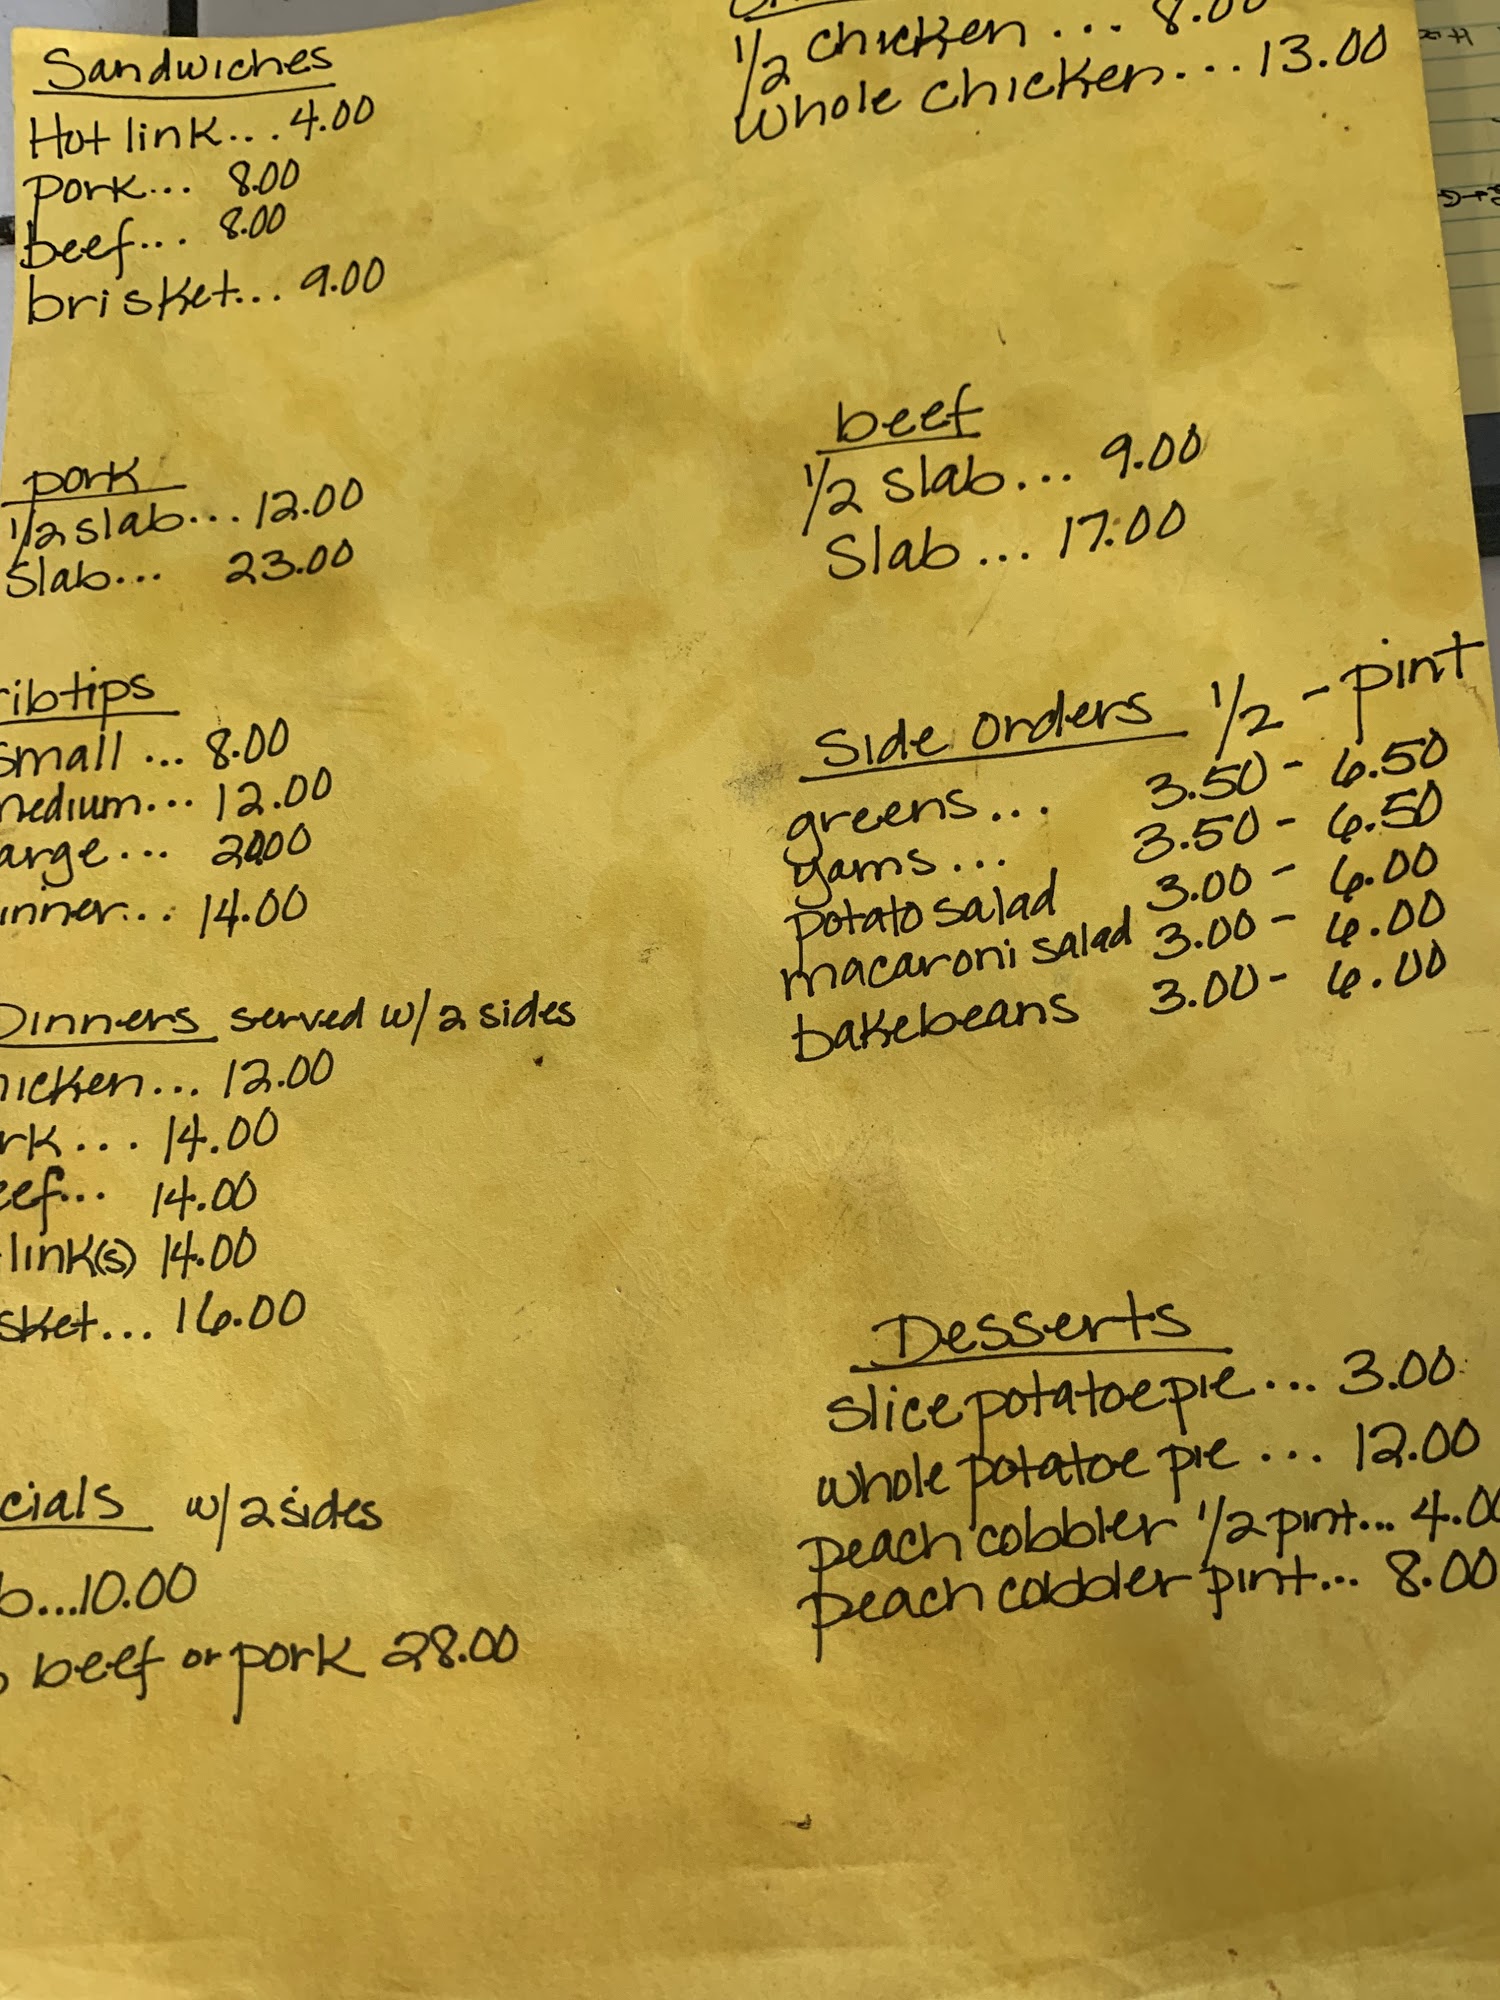 Sandwiches
Hot link... 4.00
pork... 8.00
beef... 8.00
brisket... 9.00
1/2 chicken ... 8.00
whole chicken... 13.00
pork
1/2 slab... 12.00
Slab... 23.00
beef
1/2 slab... 9.00
Slab ... 17.00
ribtips
small ... 8.00
medium... 12.00
arge... 20.00
inner... 14.00
Side orders 1/2 - pint
greens... 3.50 - 6.50
yams... 3.50 - 6.50
potato salad 3.00 - 6.00
macaroni salad 3.00 - 6.00
bakebeans 3.00 - 6.00
Dinners served w/2 sides
hicken... 12.00
rk... 14.00
eef... 14.00
link(s) 14.00
sket... 16.00
Desserts
slice potatoe pie... 3.00
whole potatoe pie ... 12.00
peach cobbler 1/2 pint... 4.00
peach cobbler pint... 8.00
cials w/2 sides
b...10.00
beef or pork 28.00